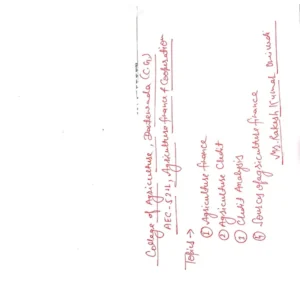 College of Agriculture, Dantewada (C.G.)
AEC-5212, Agriculture finance & Cooperation
Topics →
① Agriculture finance
② Agriculture Credit
③ Credit Analysis
④ Sources of agriculture finance
Mr. Rakesh Kumar